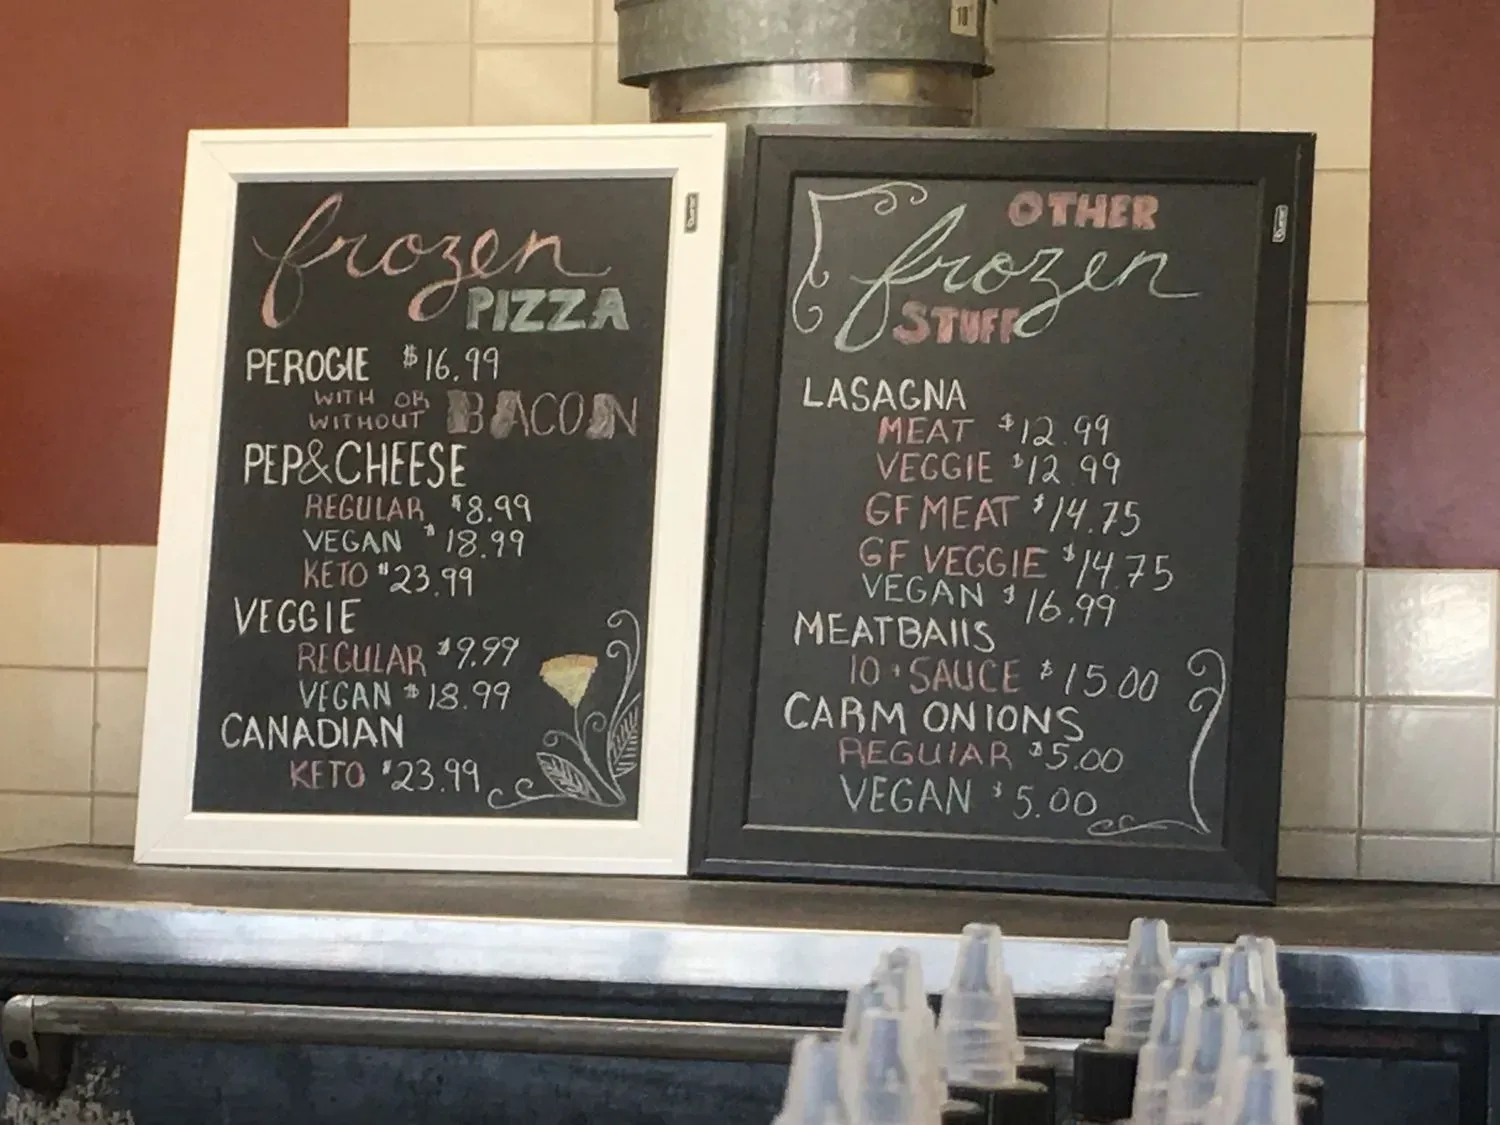 frozen
PIZZA
PEROGIE $16.99
WITH OR
WITHOUT BACON
PEP&CHEESE
REGULAR $8.99
VEGAN $18.99
KETO $23.99
VEGGIE
REGULAR $9.99
VEGAN $18.99
CANADIAN
KETO $23.99
OTHER
frozen
STUFF
LASAGNA
MEAT $12.99
VEGGIE $12.99
GF MEAT $14.75
GF VEGGIE $14.75
VEGAN $16.99
MEATBALLS
10 + SAUCE $15.00
CARM ONIONS
REGULAR $5.00
VEGAN $5.00